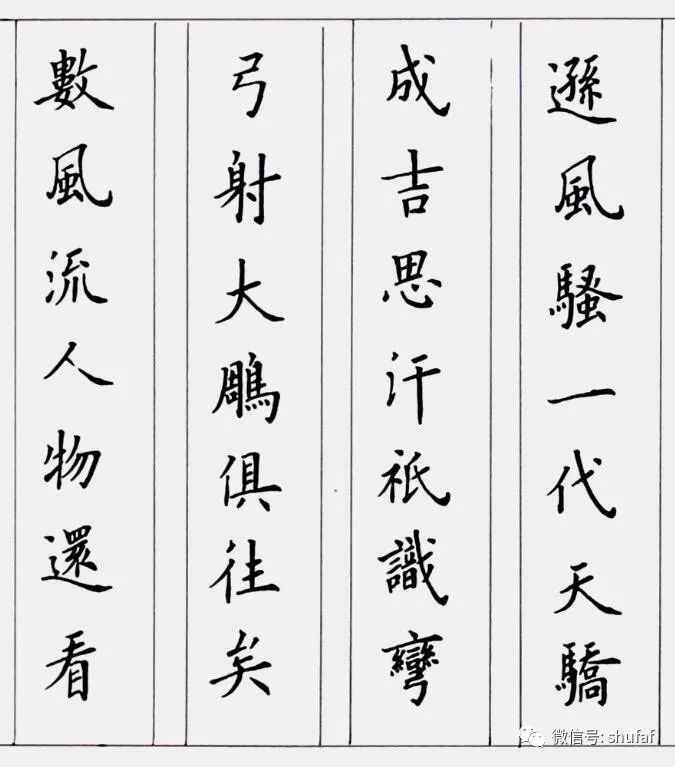 遜風騷一代天驕
成吉思汗祇識彎
弓射大雕俱往矣
數風流人物還看
微信号: shufaf